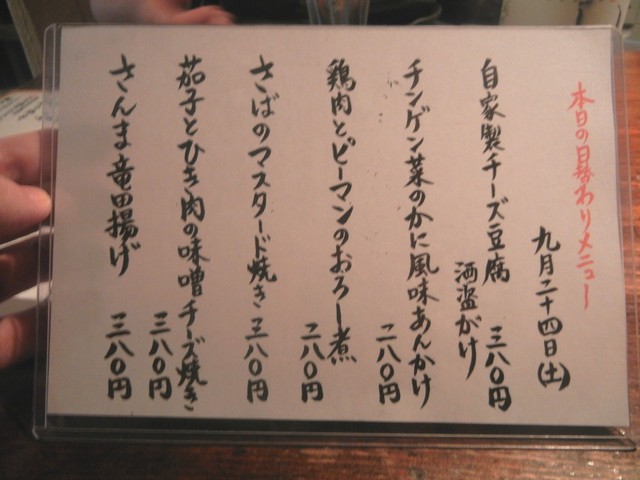 本日の日替わりメニュー
九月二十四日(土)
自家製チーズ豆腐
酒盗がけ
三八〇円
チンゲン菜のかに風味あんかけ
二八〇円
鶏肉とピーマンのおろし煮
二八〇円
さばのマスタード焼き 三八〇円
茄子とひき肉の味噌チーズ焼き
三八〇円
さんま竜田揚げ 三八〇円